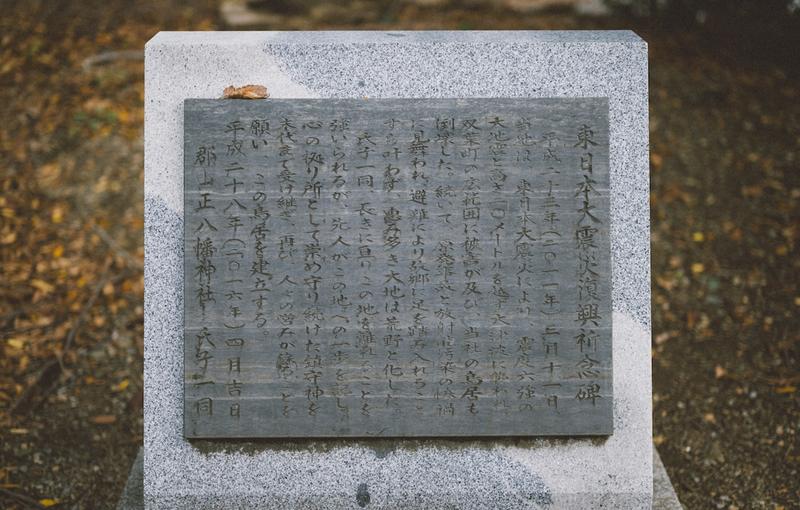 東日本大震災復興祈念碑
平成二十三年（二〇一一年）三月十一日
当地は、東日本大震災により、震度六強の
大地震と高さ一〇メートルを
双葉町の広範囲に被害が及び、当社の鳥居も
倒壊した。続いて、原発事故と放射能汚染の惨禍
に見舞われ、避難により故郷に足を踏み入れること
すら叶わず、恵み多き大地は荒野と化した。
氏子一同、長きに亘りこの地を離れることを
強いられるが、先人がこの地への一歩を記し
心の拠り所として崇め守り続けた鎮守神を
末代まで受け継ぎ、再び、人々の営みが蘇ることを
願い、この鳥居を建立する。
平成二十八年（二〇一六年）四月吉日
郡山正八幡神社 氏子一同